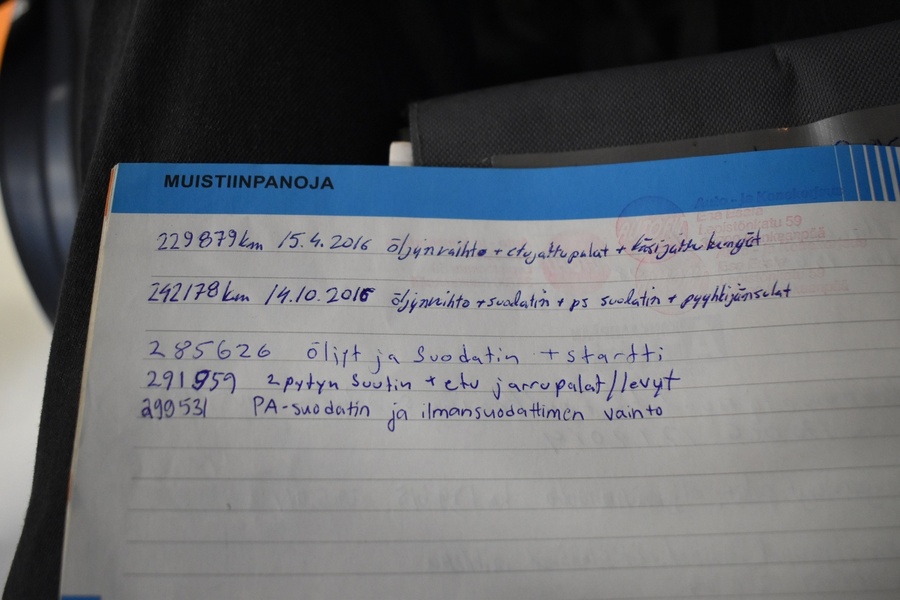 MUISTIINPANOJA
229879km 15.4.2016 öljynvaihto + etujattupalat + käsijattu kengät
242178km 14.10.2016 öljynvihto + suodatin + ps suodatin + pyyhkijänsulat
285626 öljyt ja suodatin + startti
291959 2pytyn suutin + etu jarrupalat/levyt
299531 PA-suodatin ja ilmansuodattimen vaihto